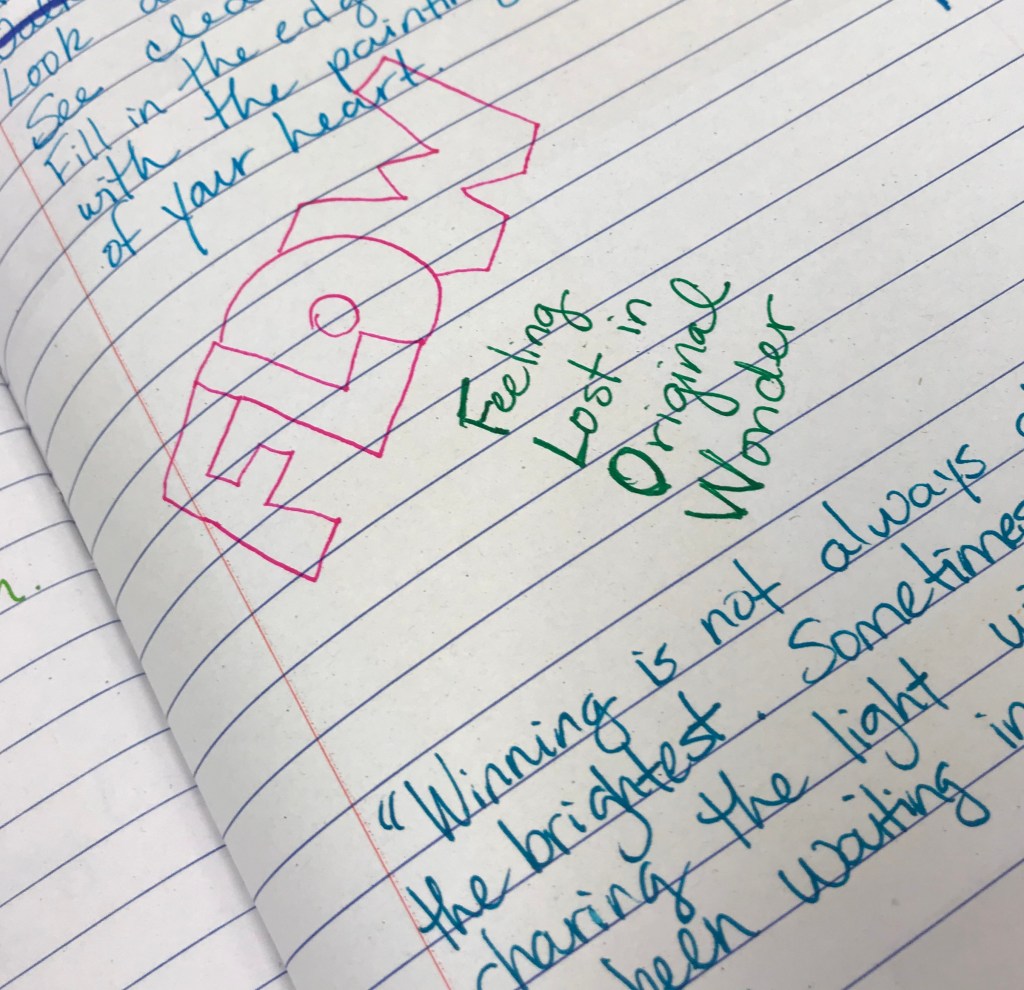 Look
See clea
Fill in the edg
with the paintin
of your heart.
FLOW
Feeling
Lost in
Original
Wonder
"Winning is not always
the brightest. Sometimes
sharing the light
been waiting in
n.